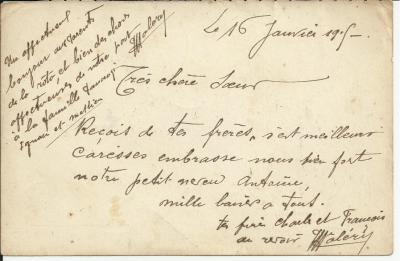 Le 16 Janvier 195-
Très chère Sœur
Reçois de tes frères, s'est meilleurs
carèsses embrasse nous bien fort
notre petit neveu Antoine,
mille baisers a tout.
tes frères Charle et François
au revoir Valéry
Un affectueux
bonjour aux parents
de la part et bien des choses
affectueuses de notre part
à la famille
et
Valéry